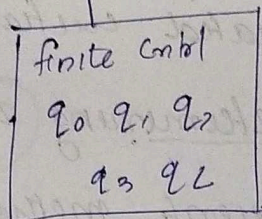 finite Cntrl
q₀ q₁ q₂
q₃ q₂